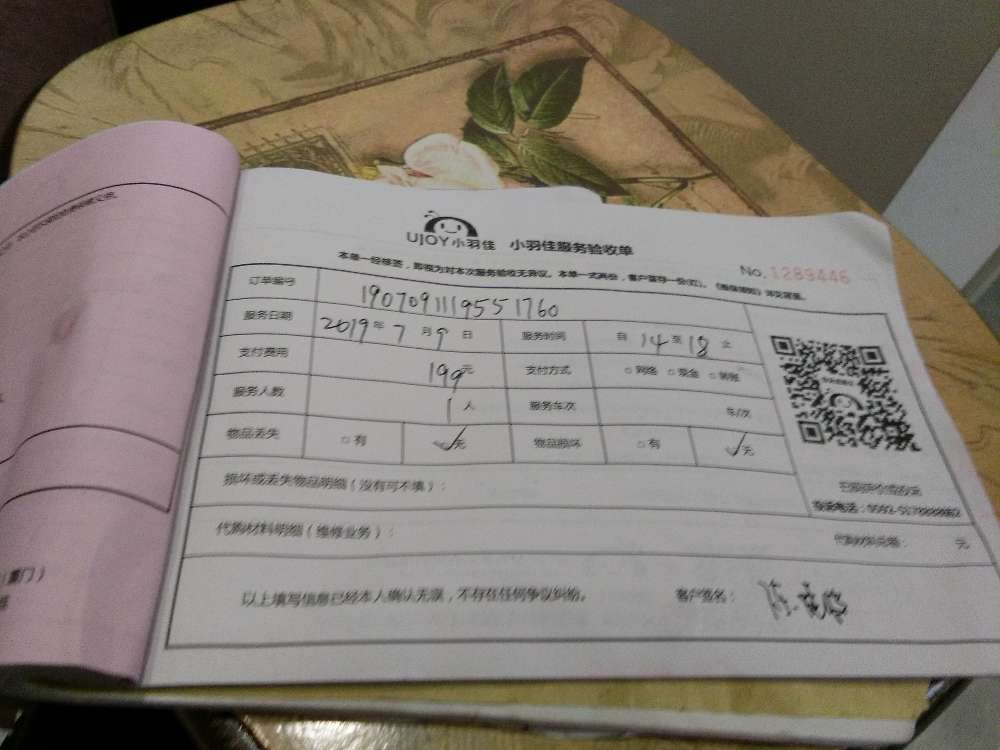 UJOY小羽佳 小羽佳服务验收单
No.1289446
本单一经核签，即视为对本次服务验收无异议。本单一式两份，客户留存一份(红)。
订单编号 1907091119551760
服务日期 2019年7月9日 服务时间 自14至18止
支付费用 199元 支付方式 □网络 □现金 □转账
服务人数 1人 服务车次 车/次
物品丢失 □有 ✓无 物品损坏 □有 ✓无
损坏或丢失物品明细（没有可不填）：
代购材料明细（维修业务）： 代购材料总额： 元
以上填写信息已经本人确认无误，不存在任何争议纠纷。 客户签名：
（厦门）